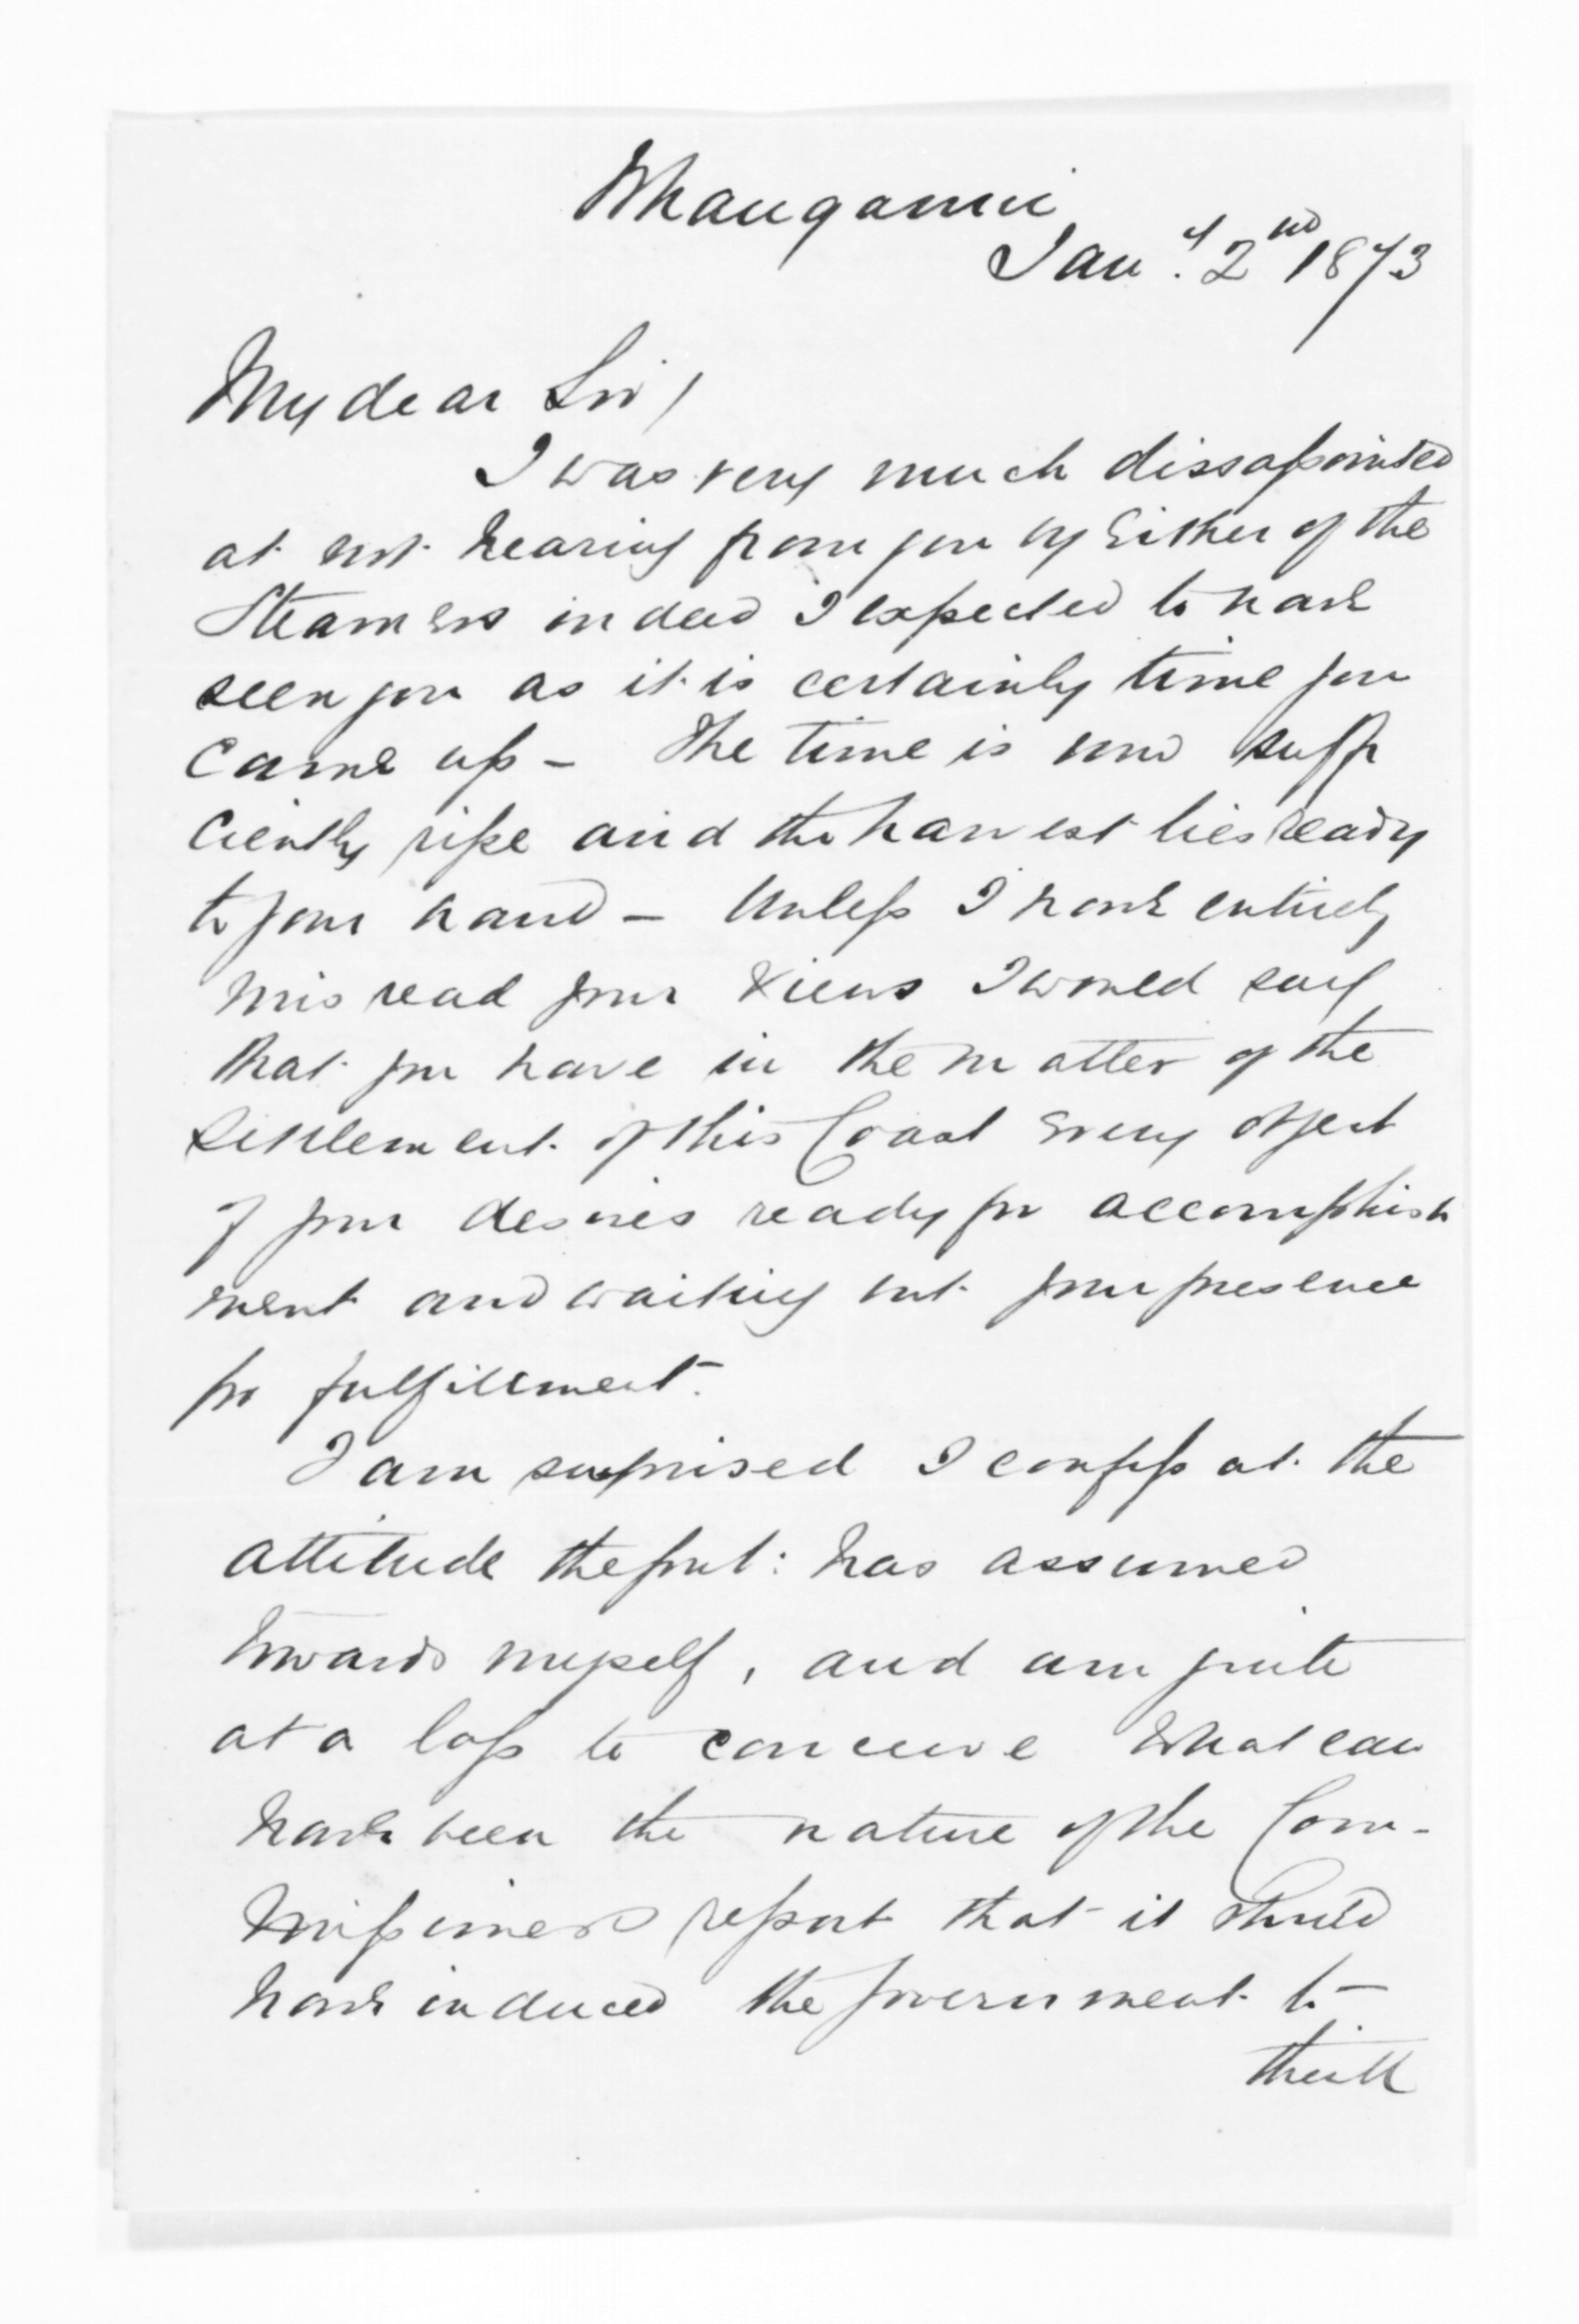 Whangaroa
Jany. 2nd 1873
My dear Sir/
I was very much dissapointed
at not hearing from you by Either of the
Steamers indeed I expected to have
seen you as it is certainly time you
came up - The time is now suffi
ciently ripe and the harvest lies ready
to your hand - Unless I have entirely
misread your views I would say
that you have in the matter of the
settlement of this Coast Every object
of your desires ready for accomplish
ment and waiting but your presence
for fulfillment.
I am surprised I confess at the
attitude the govt: has assumed
towards myself, and am quite
at a loss to conceive what can
have been the nature of the Com-
missioners report that it should
have induced the government to